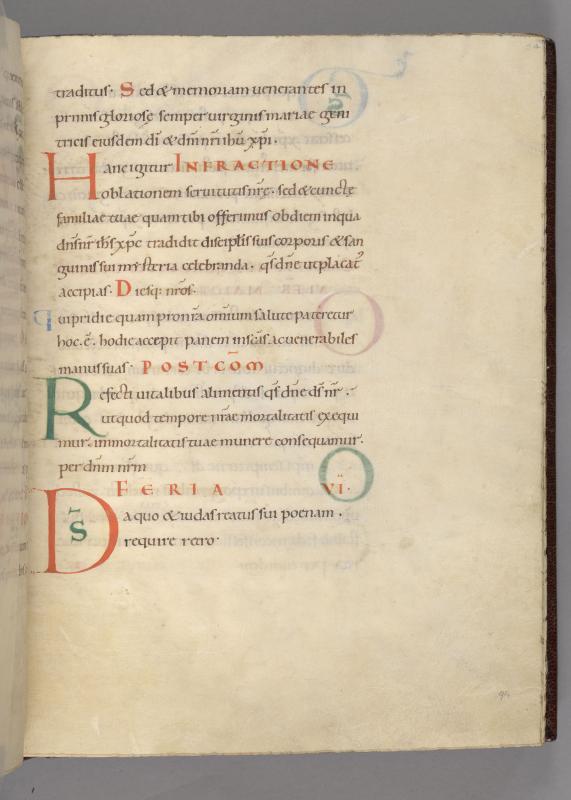 traditus. Sed & memoriam uenerantes in
primis gloriose semper uirginis mariae geni
tricis eiusdem di & dni nri ihu xpi.
Hanc igitur INFRACTIONE
oblationem seruitutis nre. sed & cuncte
familiae tuae quam tibi offerimus ob diem inqua
dns nr ihs xpc tradidit discipulis suis corporis & san
guinis sui mysteria celebranda. qs dne ut placat
accipias. Diesq: nros.
Qui pridie quam pro nra omnium salute pateretur
hoc. e. hodie accepit panem in scas ac uenerabiles
manus suas. POSTCOM
Refecti uitalibus alimentis qs dne ds nr.
ut quod tempore nrae mortalitatis exequi
mur. inmortalitatis tuae munere consequamur.
per dnm nrm
FERIA VI.
Ds a quo & iudas reatus sui poenam.
require retro.